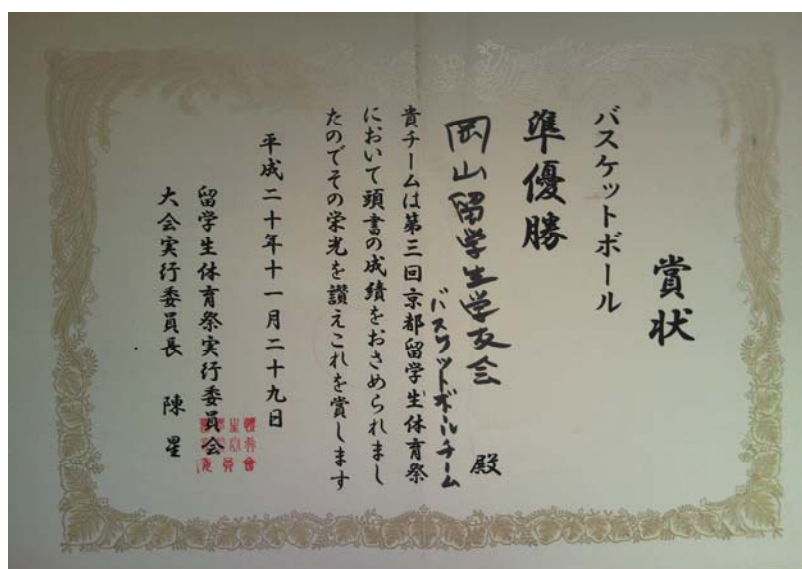 賞状
バスケットボール
準優勝
岡山留学生学友会
バスケットボールチーム
殿
貴チームは第三回京都留学生体育祭
において頭書の成績をおさめられまし
たのでその栄光を讃えこれを賞します
平成二十年十一月二十九日
留学生体育祭実行委員会
大会実行委員長 陳星